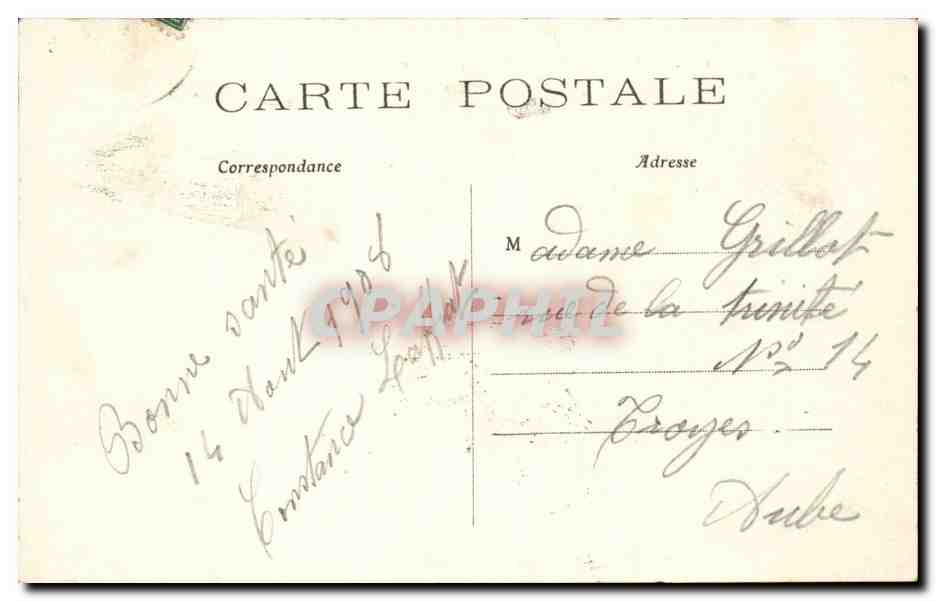 CARTE POSTALE
Correspondance
Adresse
Bonne santé
14 Aout 1908
Constance
Madame Grillot
rue de la trinité
No 14
Troyes
Aube
CPAPHIL